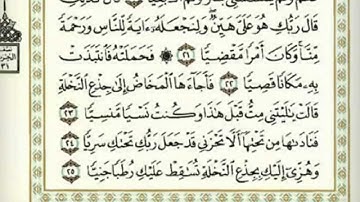 قَالَ رَبُّكِ هُوَ عَلَىَّ هَيِّنٌ وَلِنَجْعَلَهُۥٓ ءَايَةً لِّلنَّاسِ وَرَحْمَةً
مِّنَّا وَكَانَ أَمْرًا مَّقْضِيًّا ٢١ فَحَمَلَتْهُ فَٱنتَبَذَتْ
بِهِۦ مَكَانًا قَصِيًّا ٢٢ فَأَجَآءَهَا ٱلْمَخَاضُ إِلَىٰ جِذْعِ ٱلنَّخْلَةِ
قَالَتْ يَٰلَيْتَنِى مِتُّ قَبْلَ هَٰذَا وَكُنتُ نَسْيًا مَّنسِيًّا ٢٣
فَنَادَىٰهَا مِن تَحْتِهَآ أَلَّا تَحْزَنِى قَدْ جَعَلَ رَبُّكِ تَحْتَكِ سَرِيًّا ٢٤
وَهُزِّىٓ إِلَيْكِ بِجِذْعِ ٱلنَّخْلَةِ تُسَٰقِطْ عَلَيْكِ رُطَبًا جَنِيًّا ٢٥